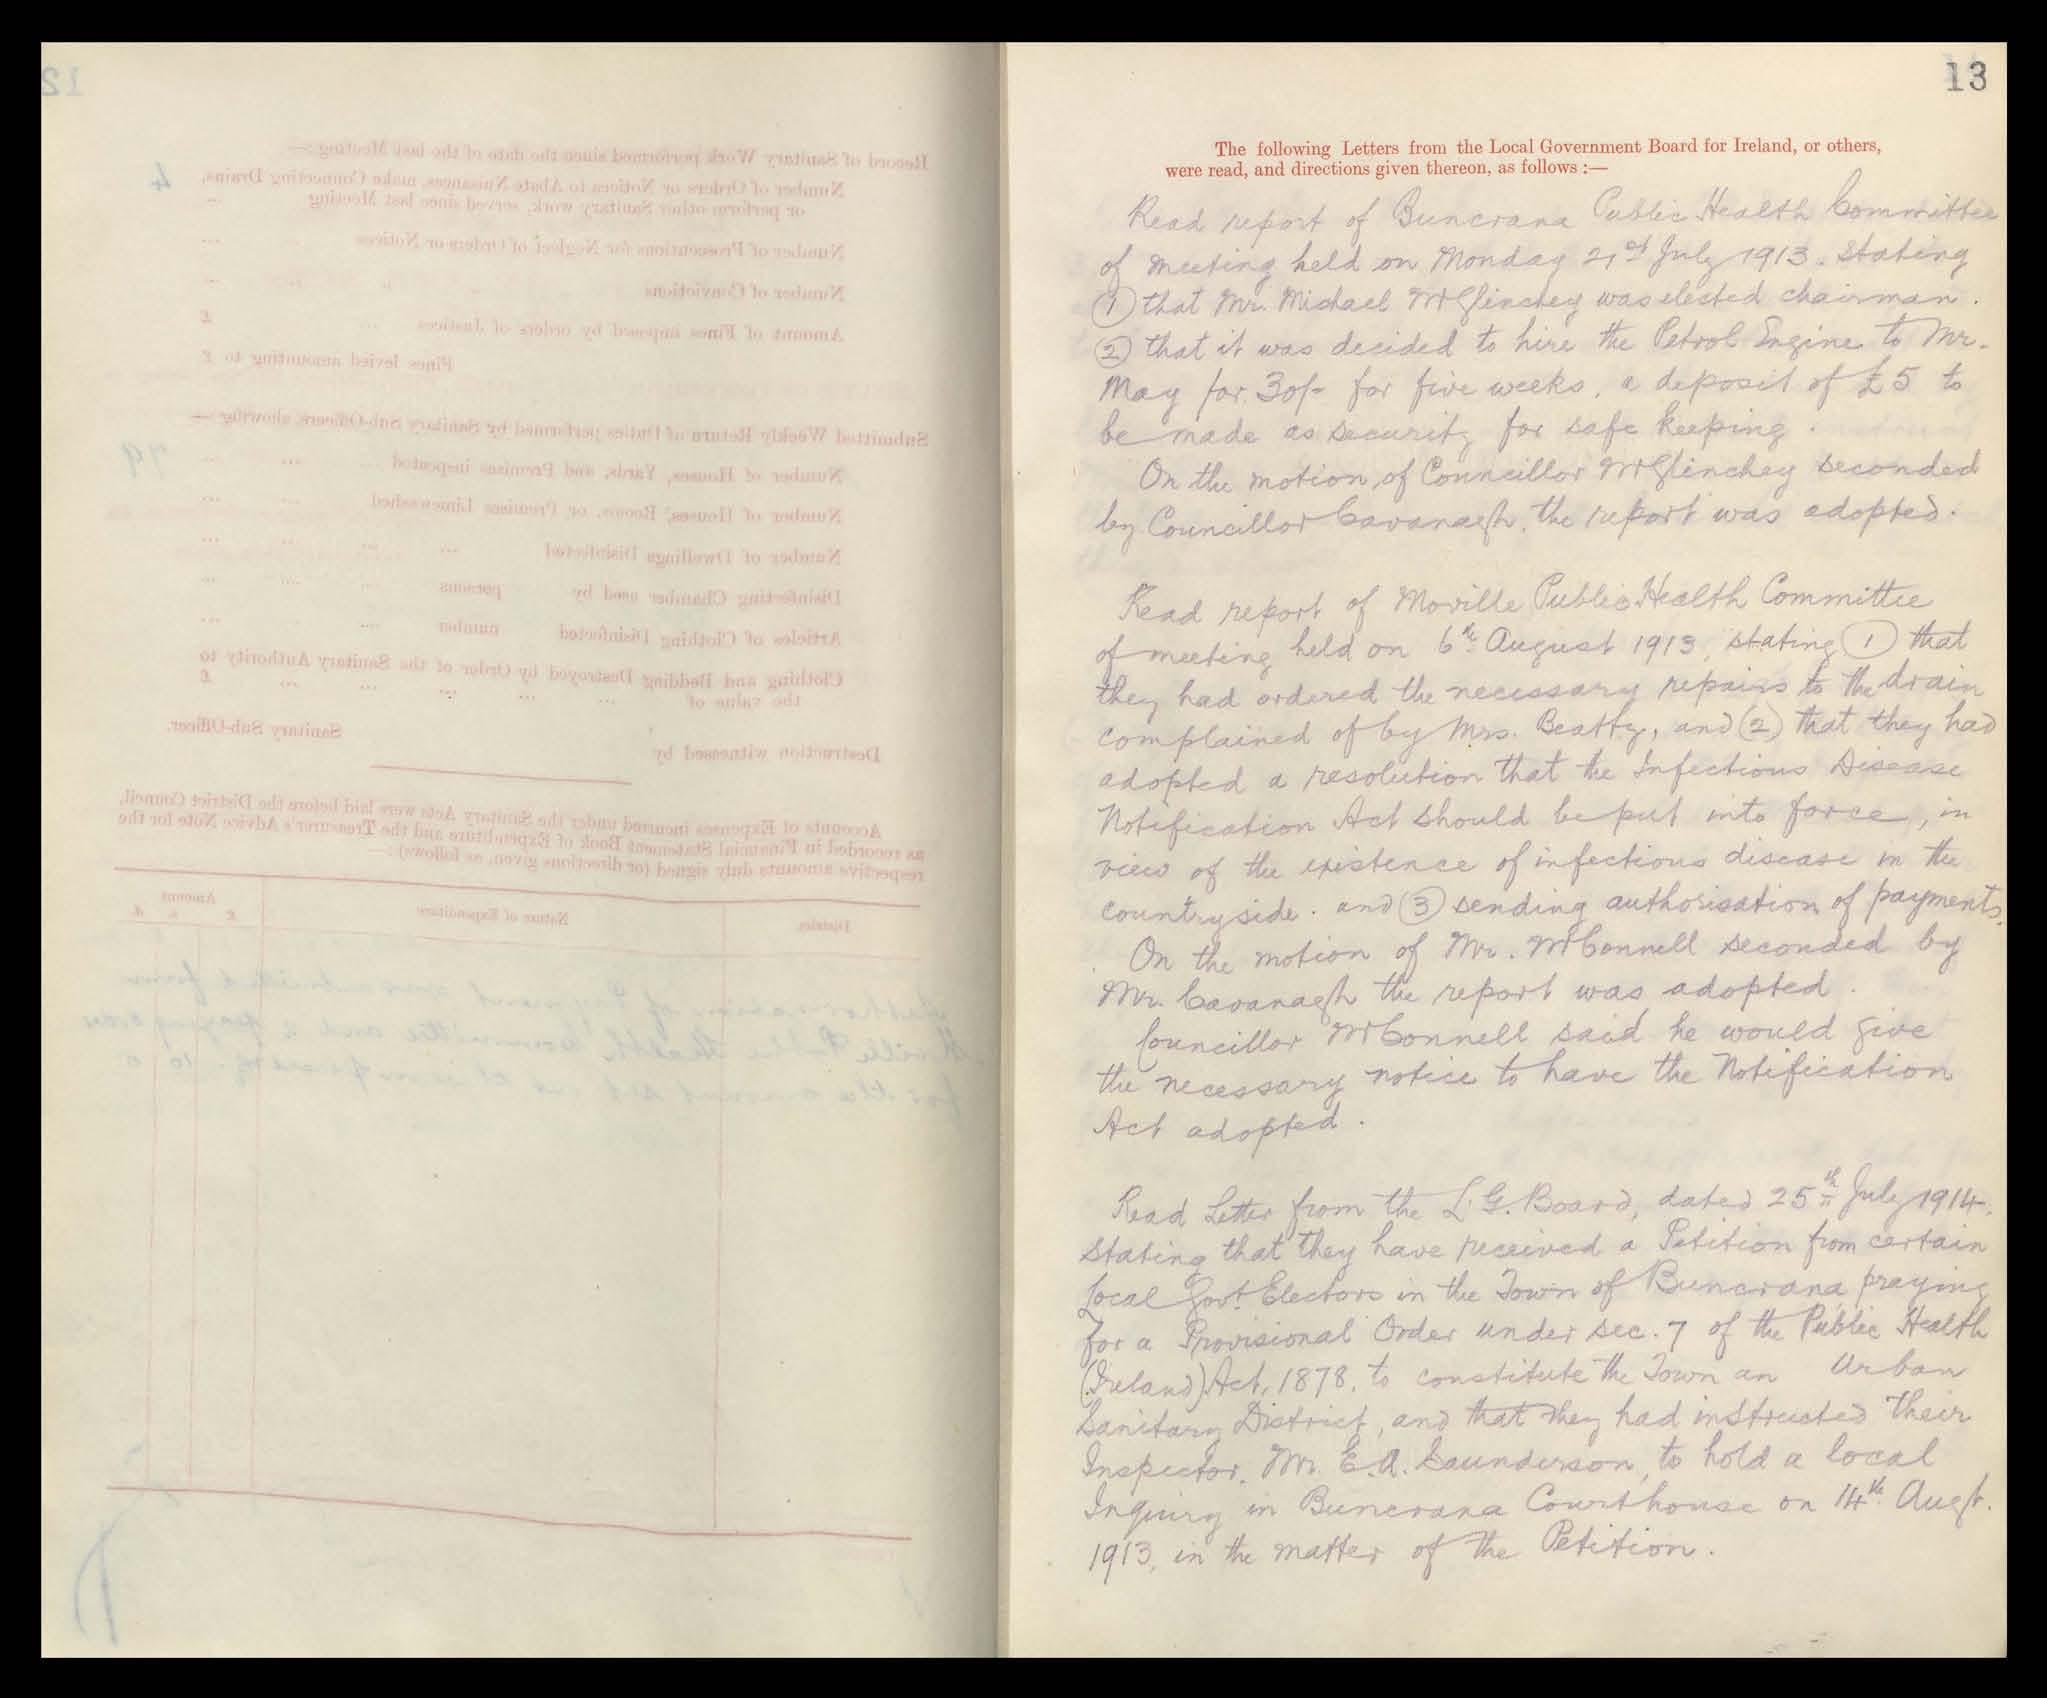 13
The following Letters from the Local Government Board for Ireland, or others,
were read, and directions given thereon, as follows :—
Read report of Buncrana Public Health Committee
of meeting held on Monday 21st July 1913. stating
① that Mr. Michael McGlinchey was elected chairman.
② that it was decided to hire the Petrol Engine to Mr.
May for 30/- for five weeks, a deposit of £5 to
be made as security for safe keeping.
On the motion of Councillor McGlinchey seconded
by Councillor Cavanagh, the report was adopted.
Read report of Moville Public Health Committee
of meeting held on 6th August 1913, stating ① that
they had ordered the necessary repairs to the drain
complained of by Mrs. Beatty, and ② that they had
adopted a resolution that the Infectious Disease
Notification Act should be put into force, in
view of the existence of infectious disease in the
countryside. and ③ sending authorisation of payments.
On the motion of Mr. McConnell seconded by
Mr. Cavanagh the report was adopted.
Councillor McConnell said he would give
the necessary notice to have the Notification
Act adopted.
Read Letter from the L. G. Board, dated 25th July 1914.
stating that they have received a Petition from certain
Local Govt. Electors in the Town of Buncrana praying
for a Provisional Order under sec. 7 of the Public Health
(Ireland) Act, 1878, to constitute the Town an Urban
Sanitary District, and that they had instructed their
Inspector, Mr. E. A. Saunderson, to hold a local
Inquiry in Buncrana Courthouse on 14th Augt.
1913, in the matter of the Petition.